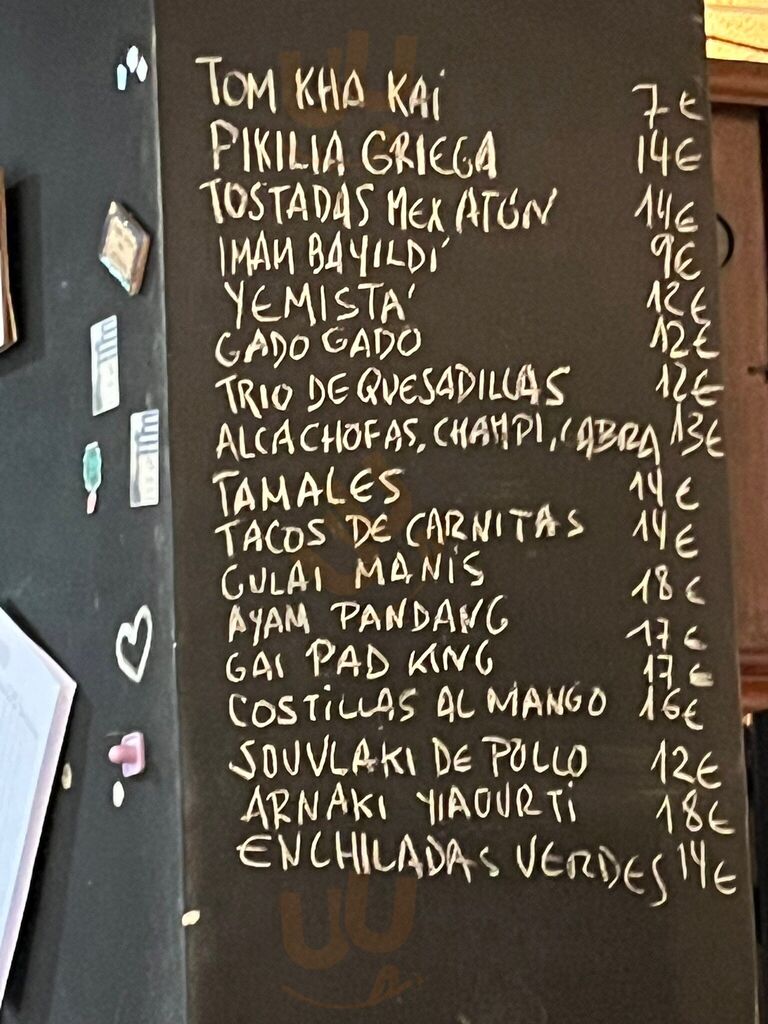 TOM KHA KAI 7€
PIKILIA GRIEGA 14€
TOSTADAS MEX ATÚN 14€
IMAM BAYILDÍ 9€
YEMISTÁ 12€
GADO GADO 12€
TRIO DE QUESADILLAS 12€
ALCACHOFAS, CHAMPI, CABRA 13€
TAMALES 14€
TACOS DE CARNITAS 14€
GULAI MANIS 18€
AYAM PANDANG 17€
GAI PAD KING 17€
COSTILLAS AL MANGO 16€
SOUVLAKI DE POLLO 12€
ARNAKI YIAOURTI 18€
ENCHILADAS VERDES 14€